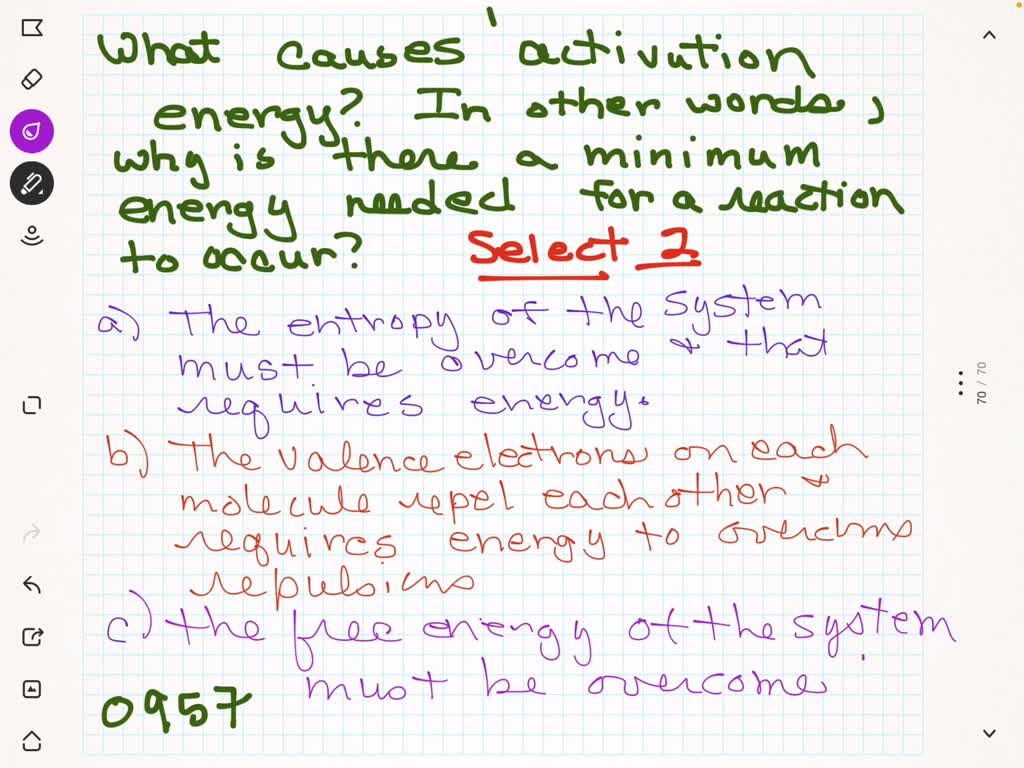 What causes activution
energy? In other words,
why is there a minimum
energy needed for a reaction
to occur? Select 2
a) The entropy of the system
must be overcome & that
requires energy.
b) The valence electrons on each
molecule repel each other &
requires energy to overcome
repulsions
c) the free energy of the system
must be overcome
0957
70 / 70